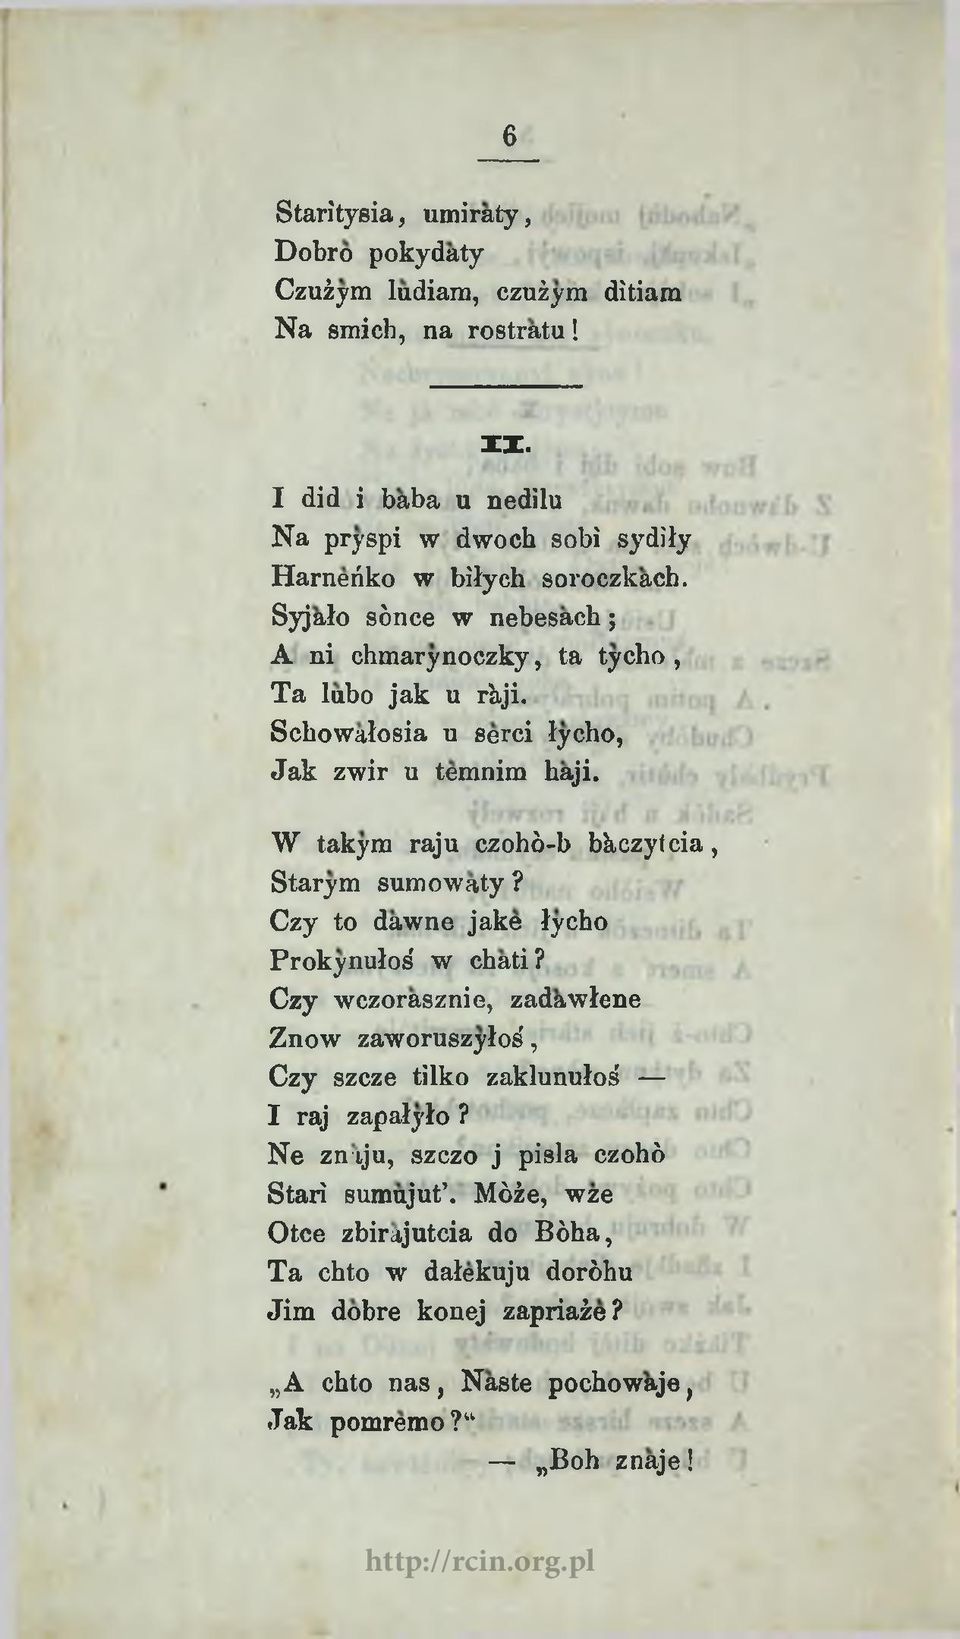 6
Starìtysia, umiràty,
Dobrò pokydàty
Czużỳm lùdiam, czużỳm dìtiam
Na smich, na rostràtu!
II.
I did i bàba u nedìlu
Na prỳspi w dwoch sobì sydìły
Harnèńko w biłych soroczkàch.
Syjàło sònce w nebesàch;
A ni chmarỳnoczky, ta tỳcho,
Ta lùbo jak u ràji.
Schowàłosia u sèrci łỳcho,
Jak zwir u tèmnim hàji.
W takỳm raju czohò-b bàczytcia,
Starỳm sumowàty?
Czy to dàwne jakè łỳcho
Prokỳnułoś w chàti?
Czy wczoràsznie, zadàwłene
Znow zaworuszỳłoś,
Czy szcze tilko zaklunułoś —
I raj zapałỳło?
Ne znàju, szczo j pisla czohò
Starì sumùjut’. Mòże, wże
Otce zbiràjutcia do Bòha,
Ta chto w dałèkuju doròhu
Jim dòbre konej zapriażè?
„A chto nas, Nàste pochowàje,
Jak pomrèmo?“
— „Boh znàje!
http://rcin.org.pl